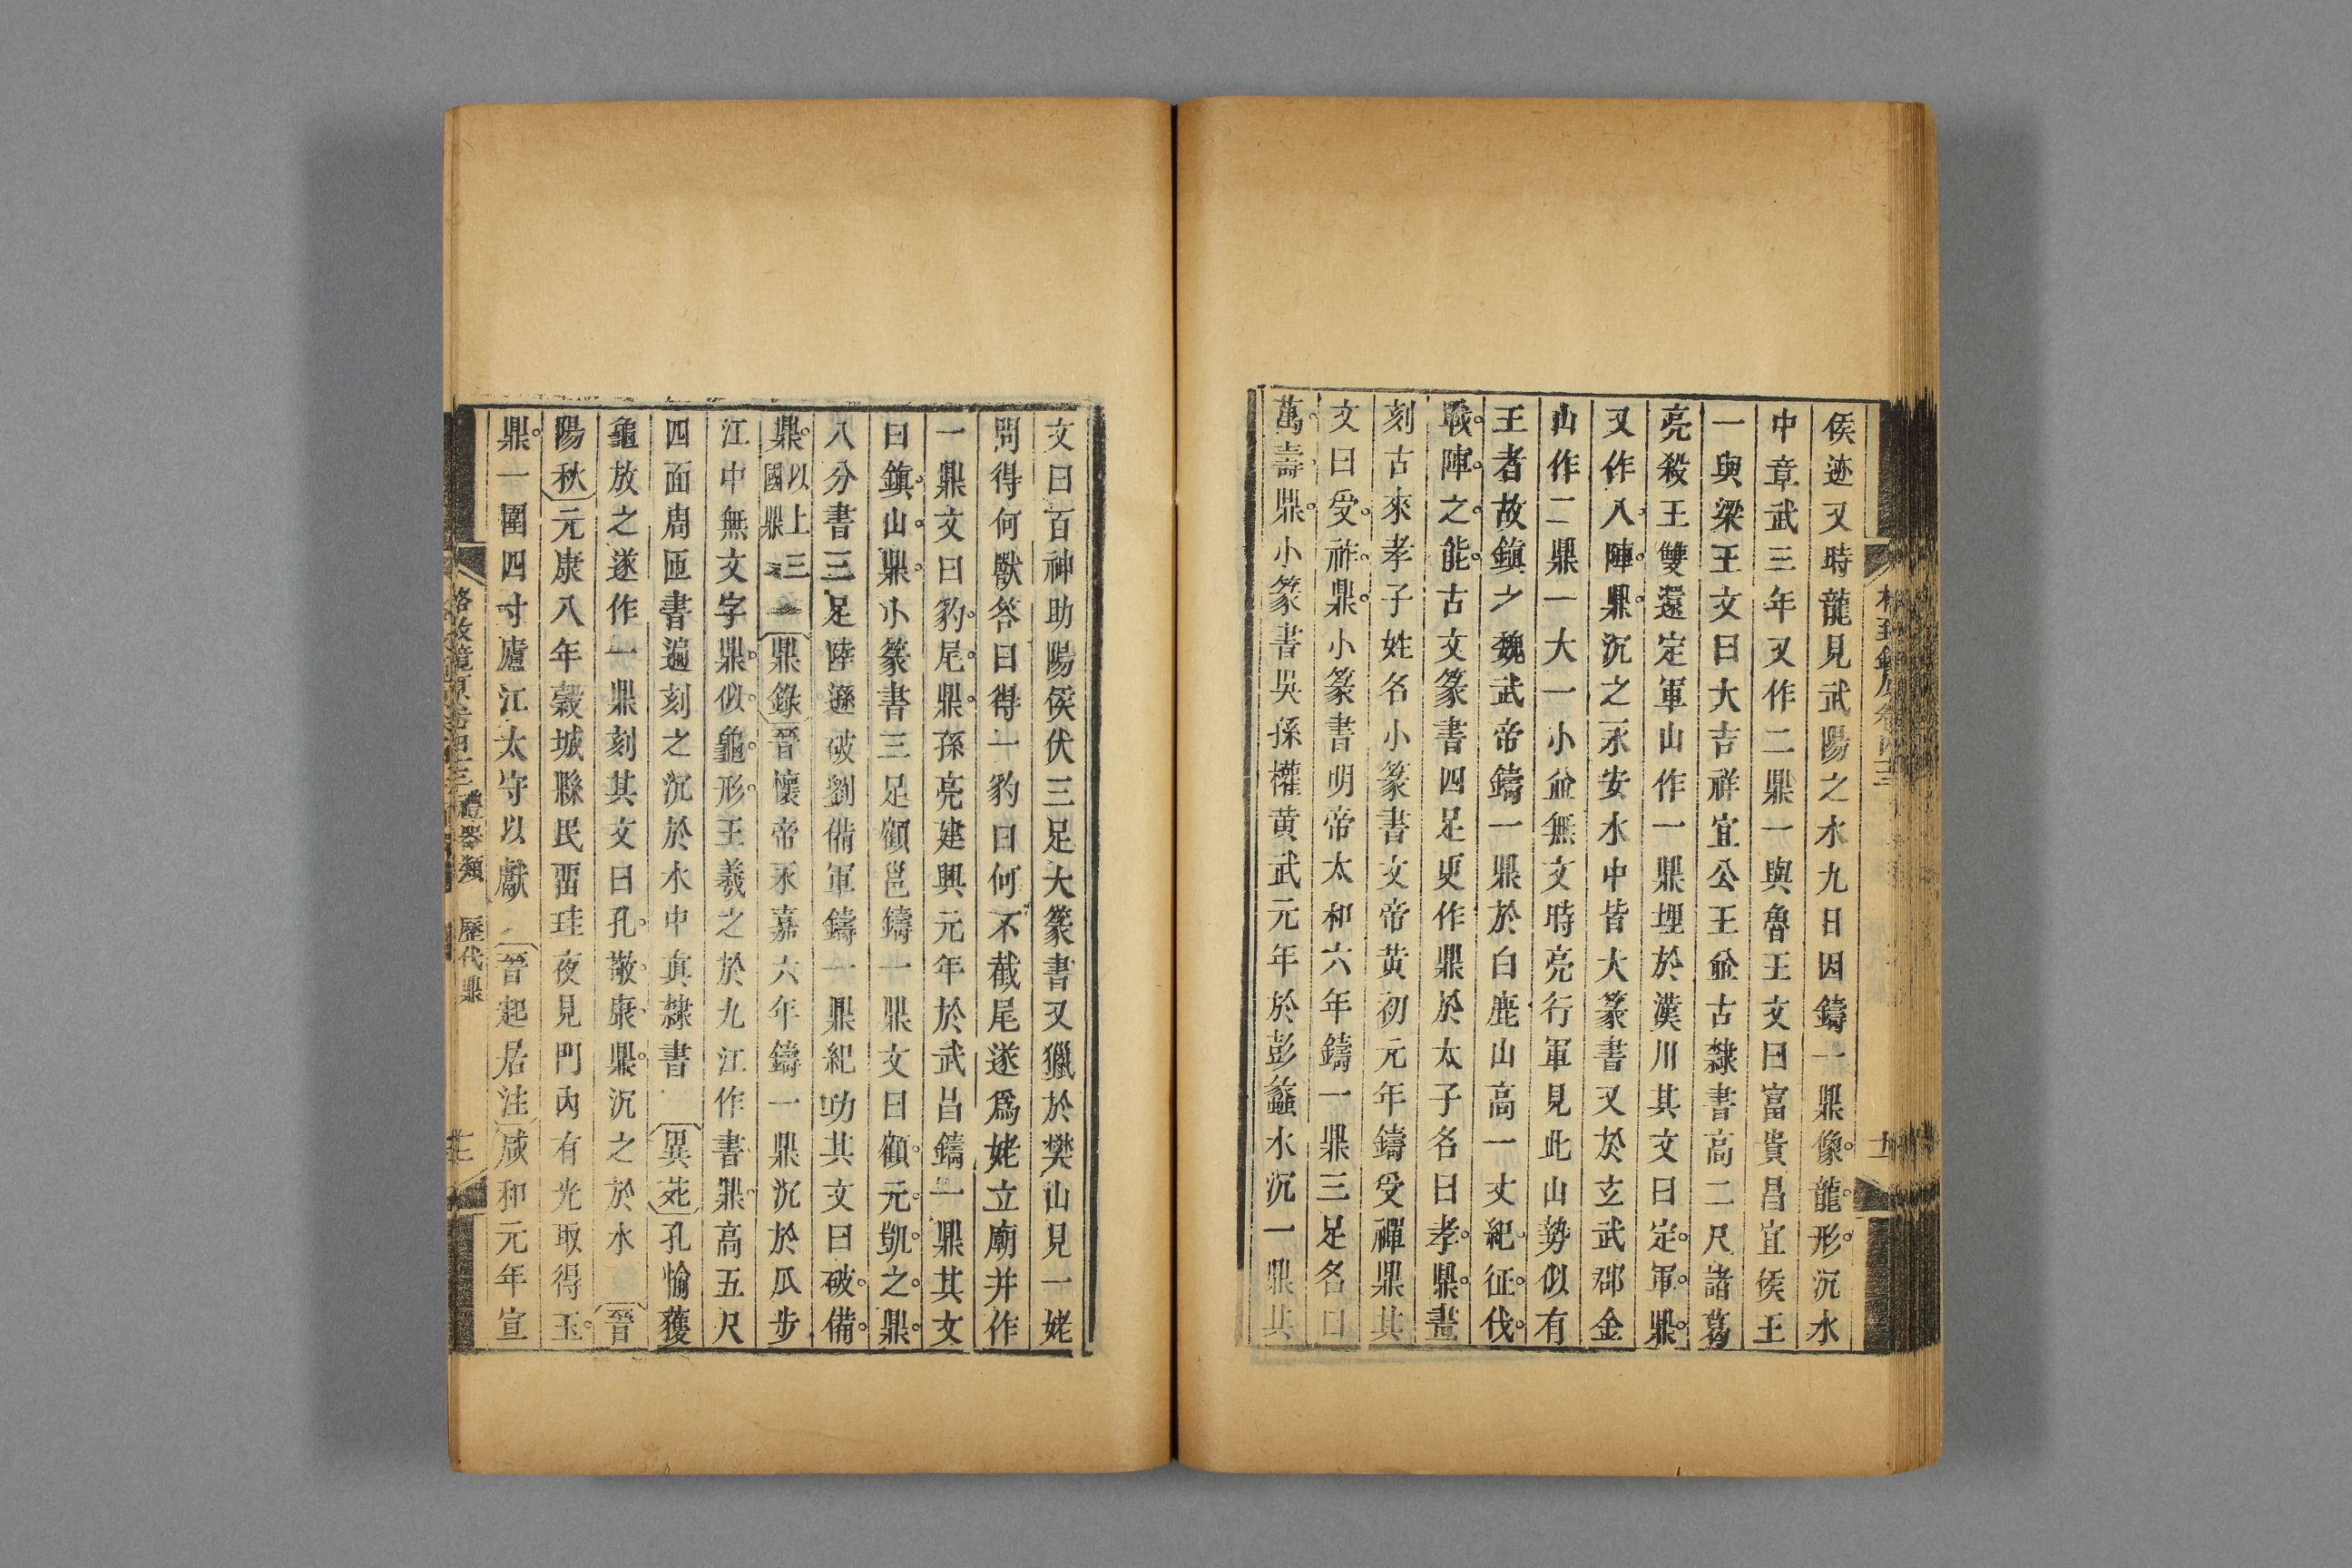 侯迹又時龍見武陽之水九日因鑄一鼎像龍形沉水
中章武三年又作二鼎一與魯王文曰富貴昌宜侯王
一與梁王文曰大吉祥宜公王並古隸書高二尺諸葛
亮殺王雙還定軍山作一鼎埋於漢川其文曰定軍鼎
又作八陣鼎沉之永安水中皆大篆書又於玄武郡金
山作二鼎一大一小並無文時亮行軍見此山勢似有
王者故鎮之魏武帝鑄一鼎於白鹿山高一丈紀征伐
戰陣之能古文篆書四足更作鼎於太子名曰孝鼎畫
刻古來孝子姓名小篆書文帝黃初元年鑄受禪鼎其
文曰受祚鼎小篆書明帝太和六年鑄一鼎三足名曰
萬壽鼎小篆書吳孫權黃武元年於彭蠡水沉一鼎其
文曰百神助陽侯伏三足大篆書又獵於樊山見一姥
問得何獸答曰得一豹曰何不截尾遂爲姥立廟并作
一鼎文曰豹尾鼎孫亮建興元年於武昌鑄一鼎其文
曰鎮山鼎小篆書三足顧邕鑄一鼎文曰顧元凱之鼎
八分書三足陸遜破劉備軍鑄一鼎紀功其文曰破備
鼎以上三國鼎鼎錄晉懷帝永嘉六年鑄一鼎沉於瓜步
江中無文字鼎似龜形王羲之於九江作書鼎高五尺
四面周匝書遍刻之沉於水中真隸書異苑孔愉獲
龜放之遂作一鼎刻其文曰孔敬康鼎沉之於水晉
陽秋元康八年穀城縣民留珪夜見門內有光取得玉
鼎一圍四寸廬江太守以獻晉起居注咸和元年宣
格致鏡原卷四十三 禮器類 歷代鼎